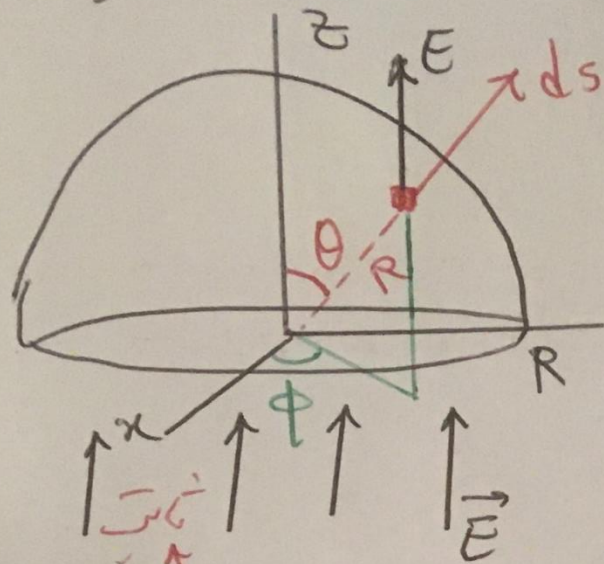 Z
E
ds
θ
R
R
x
ϕ
E